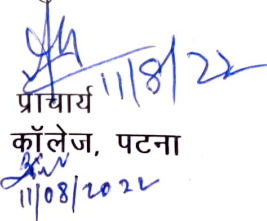 11/8/22
प्राचार्य
कॉलेज, पटना
11/08/2022